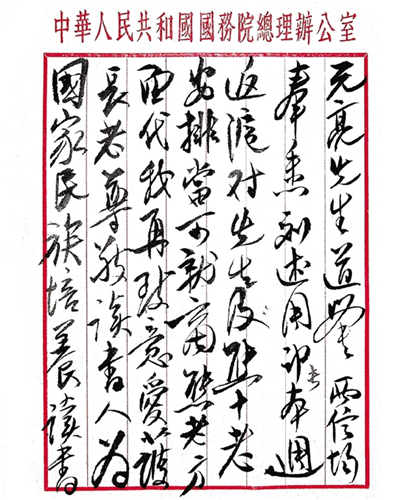 中華人民共和國國務院總理辦公室
元亮先生道鑒 兩信均
奉悉 述用印本週
返滬对先生及熊十老
安排當可就商熊老方
面代我再致意愛護
長老尊敬讀書人為
國家民族培養讀書